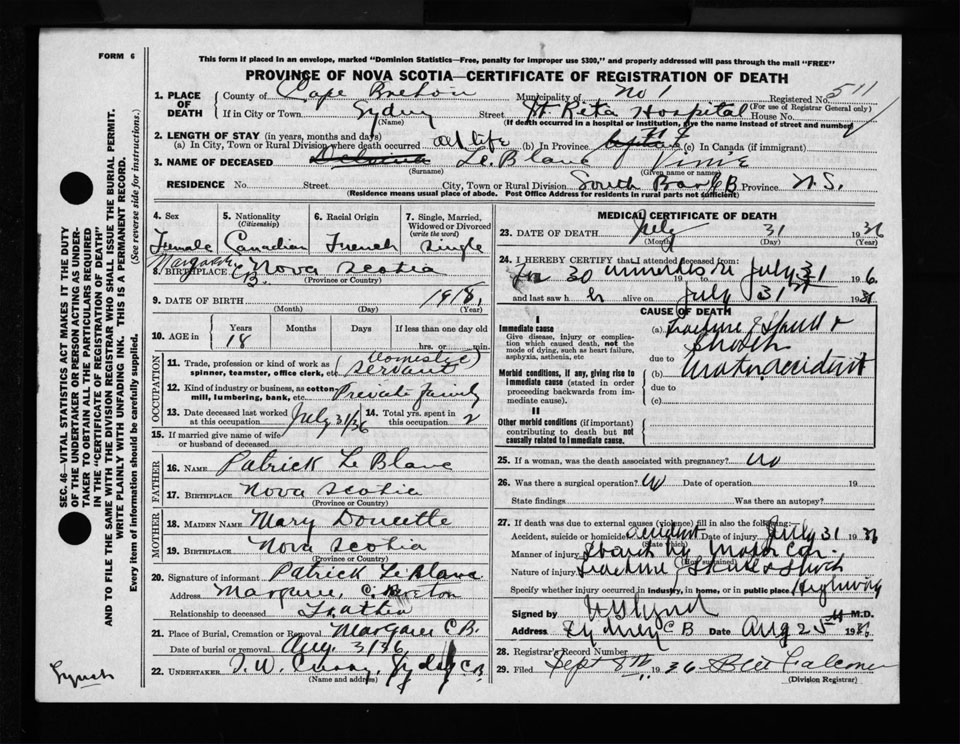 FORM 6
This form if placed in an envelope, marked "Dominion Statistics—Free, penalty for improper use $300," and properly addressed will pass through the mail "FREE"
PROVINCE OF NOVA SCOTIA—CERTIFICATE OF REGISTRATION OF DEATH
SEC. 46—VITAL STATISTICS ACT MAKES IT THE DUTY
OF THE UNDERTAKER OR PERSON ACTING AS UNDER-
TAKER TO OBTAIN ALL THE PARTICULARS REQUIRED
IN THE "CERTIFICATE OF REGISTRATION OF DEATH"
AND TO FILE THE SAME WITH THE DIVISION REGISTRAR WHO SHALL ISSUE THE BURIAL PERMIT.
WRITE PLAINLY WITH UNFADING INK. THIS IS A PERMANENT RECORD.
Every item of information should be carefully supplied. (See reverse side for instructions.)
1. PLACE OF DEATH County of Cape Breton Municipality of No 1 Registered No. 511
(For use of Registrar General only)
If in City or Town Sydney (Name) Street St Rita Hospital House No.
(If death occurred in a hospital or institution, give the name instead of street and number)
2. LENGTH OF STAY (in years, months and days)
(a) In City, Town or Rural Division where death occurred all life (b) In Province (c) In Canada (if immigrant)
3. NAME OF DECEASED Le Blanc (Surname) Vinie (Given name or names)
RESIDENCE No. Street City, Town or Rural Division South Bar CB Province N.S.
(Residence means usual place of abode. Post Office Address for residents in rural parts not sufficient)
4. Sex Female
5. Nationality (Citizenship) Canadian
6. Racial Origin French
7. Single, Married, Widowed or Divorced (write the word) Single
8. BIRTHPLACE Margaree C.B. Nova Scotia
(Province or County)
9. DATE OF BIRTH 1918
(Month) (Day) (Year)
10. AGE in Years 18 Months Days If less than one day old
hrs. or min.
OCCUPATION
11. Trade, profession or kind of work as spinner, teamster, office clerk, etc. (domestic) servant
12. Kind of industry or business, as cotton-mill, lumbering, bank, etc. Private family
13. Date deceased last worked at this occupation July 31/36 14. Total yrs. spent in this occupation 2
15. If married give name of wife or husband of deceased
FATHER
16. NAME Patrick Le Blanc
17. BIRTHPLACE Nova Scotia
(Province or County)
MOTHER
18. MAIDEN NAME Mary Doucette
19. BIRTHPLACE Nova Scotia
(Province or County)
20. Signature of informant Patrick Le Blanc
Address Margaree, C. Breton
Relationship to deceased Father
21. Place of Burial, Cremation or Removal Margaree C.B.
Date of burial or removal Aug. 3/36
22. UNDERTAKER Sydney C.B.
(Name and address)
Lynch
MEDICAL CERTIFICATE OF DEATH
23. DATE OF DEATH July 31 1936
(Month) (Day) (Year)
24. I HEREBY CERTIFY that I attended deceased from:
For 30 minutes 19 to July 31 1936
and last saw h er alive on July 31st 1936
CAUSE OF DEATH
I
Immediate cause
Give disease, injury or complication which caused death, not the mode of dying, such as heart failure, asphyxia, asthenia, etc
(a) Fracture of Skull &
Shock
due to
Morbid conditions, if any, giving rise to immediate cause (stated in order proceeding backwards from immediate cause).
(b) motor accident
due to
(c)
II
Other morbid conditions (if important) contributing to death but not causally related to immediate cause.
25. If a woman, was the death associated with pregnancy? No
26. Was there a surgical operation? No Date of operation 19
State findings Was there an autopsy?
27. If death was due to external causes (violence) fill in also the following:
Accident, suicide or homicide accident (State which) Date of injury July 31 1936
Manner of injury Struck by Motor Car. (How sustained)
Nature of injury Fracture of Skull & Shock
Specify whether injury occurred in industry, in home, or in public place Highway
Signed by M.D.
Address Sydney C B Date Aug 25th 1936
28. Registrar's Record Number
29. Filed Sept 8th 1936
(Division Registrar)